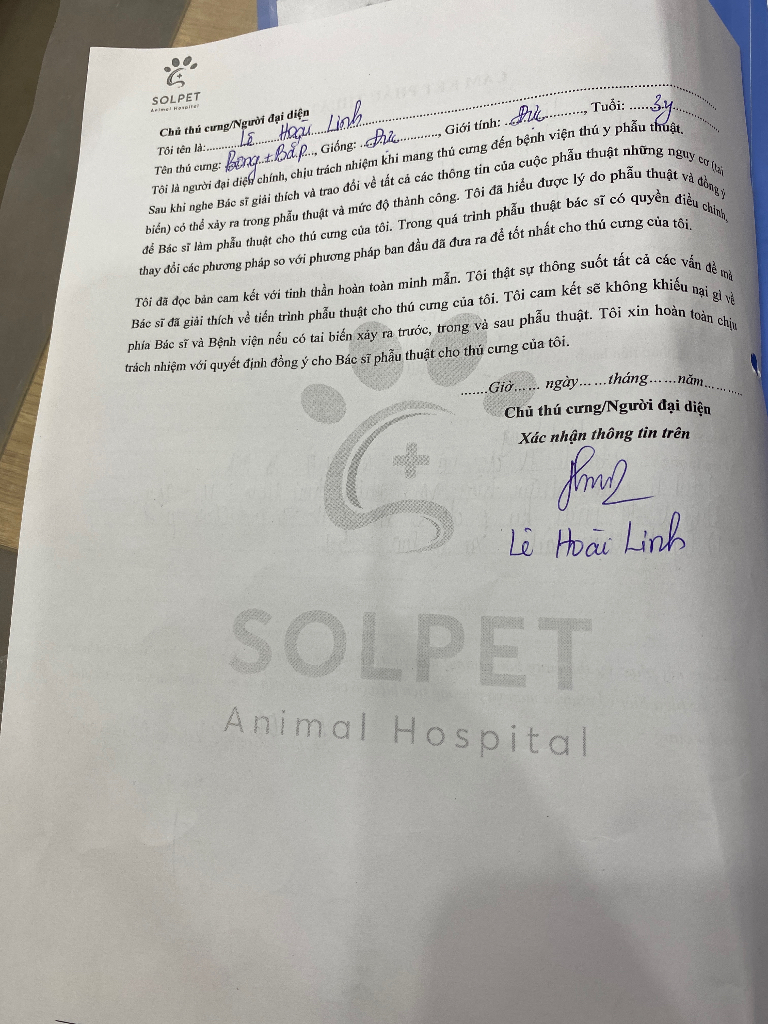 SOLPET
Animal Hospital
Chủ thú cưng/Người đại diện
Tôi tên là:.......Lê Hoài Linh.......
Tên thú cưng: Bông + Bắp..., Giống: ..Đực..........., Giới tính: ..Đực..........., Tuổi: ......3y.........
Tôi là người đại diện chính, chịu trách nhiệm khi mang thú cưng đến bệnh viện thú y phẫu thuật.
Sau khi nghe Bác sĩ giải thích và trao đổi về tất cả các thông tin của cuộc phẫu thuật những nguy cơ (tai
biến) có thể xảy ra trong phẫu thuật và mức độ thành công. Tôi đã hiểu được lý do phẫu thuật và đồng ý
để Bác sĩ làm phẫu thuật cho thú cưng của tôi. Trong quá trình phẫu thuật bác sĩ có quyền điều chỉnh,
thay đổi các phương pháp so với phương pháp ban đầu đã đưa ra để tốt nhất cho thú cưng của tôi.
Tôi đã đọc bản cam kết với tinh thần hoàn toàn minh mẫn. Tôi thật sự thông suốt tất cả các vấn đề mà
Bác sĩ đã giải thích về tiến trình phẫu thuật cho thú cưng của tôi. Tôi cam kết sẽ không khiếu nại gì về
phía Bác sĩ và Bệnh viện nếu có tai biến xảy ra trước, trong và sau phẫu thuật. Tôi xin hoàn toàn chịu
trách nhiệm với quyết định đồng ý cho Bác sĩ phẫu thuật cho thú cưng của tôi.
.......Giờ...... ngày......tháng......năm..........
Chủ thú cưng/Người đại diện
Xác nhận thông tin trên
Lê Hoài Linh
SOLPET
Animal Hospital